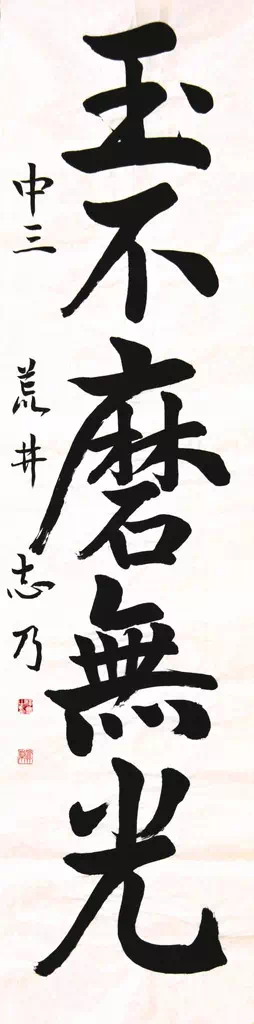 玉不磨無光
中三 荒井志乃